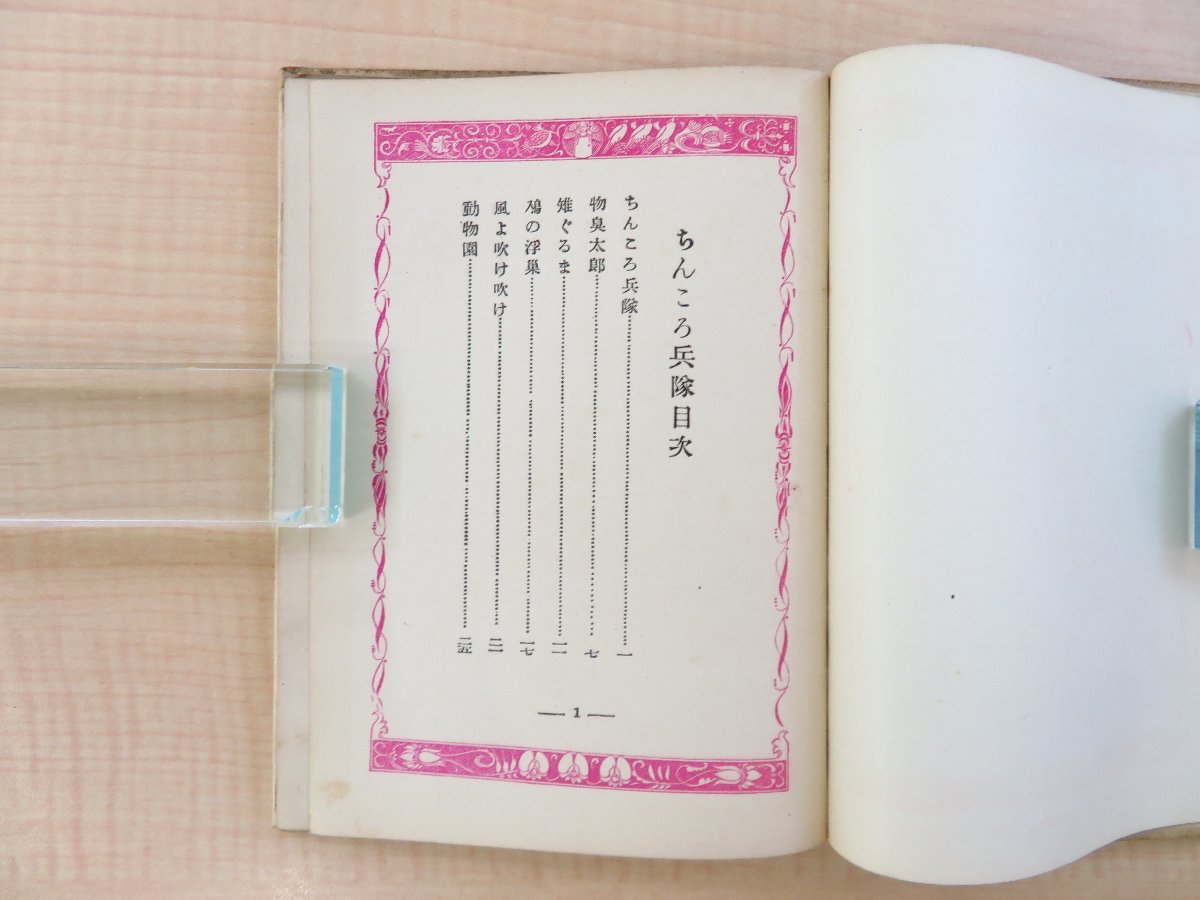 ちんころ兵隊目次
ちんころ兵隊…………一
物臭太郎…………七
雉ぐるま…………一一
鳰の浮巣…………一七
風よ吹け吹け…………二一
動物園…………二五
— 1 —